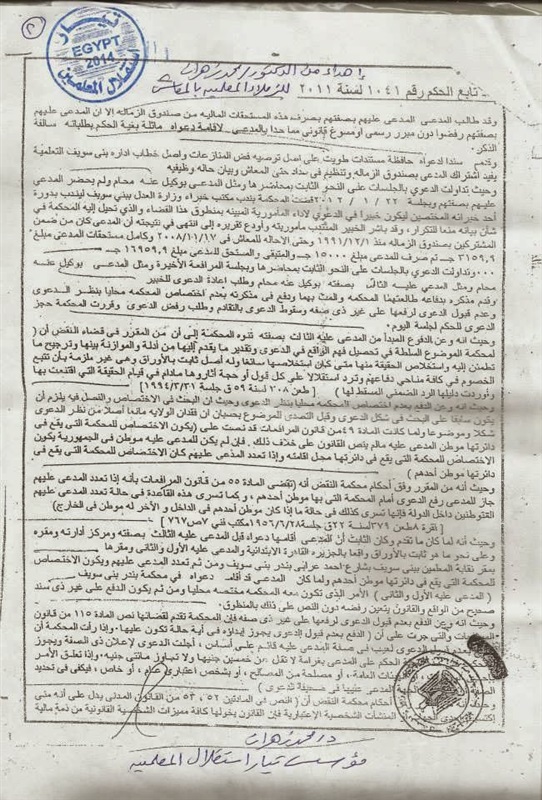 ٢
تيار
EGYPT
2014
استقلال المعلمين
إهداء من الدكتور/محمد زهران
للزملاء المعلمين بالمعاش
تابع الحكم رقم ١٠٤١ لسنة ٢٠١١
وقد طالب المدعى المدعى عليهم بصفتهم بصرف هذه المستحقات المالية من صندوق الزماله إلا ان المدعى عليهم
بصفتهم رفضوا دون مبرر رسمى اومسوغ قانونى مما حدا بالمدعى لاقامة دعواه ماثلة بغية الحكم بطلباته سالفة
الذكر.
وقدم سندا لدعواه حافظة مستندات طويت على اصل توصيه فض المنازعات واصل خطاب اداره بنى سويف التعليمية
يفيد اشتراك المدعى بصندوق الزمالة وتنظيم فى سداد حتى المعاش وبيان حاله وظيفيه
وحيث تداولت الدعوى بالجلسات على النحو الثابت بمحاضرها ومثل المدعى بوكيل عنه محام ولم يحضر المدعى
عليهم بصفتهم وبجلسة ٢٠١٢/١/٢٢ قضت المحكمة بندب مكتب خبراء وزارة العدل ببنى سويف ليندب بدورة
أحد خبرائه المختصين ليكون خبيرا فى الدعوى لاداء المأمورية المبينه بمنطوق هذا القضاء والذى تحيل إليه المحكمة فى
شأن بيانه منعا للتكرار، وقد باشر الخبير المنتدب مأموريته وأودع تقريره إلى انتهى فى نتيجته أن المدعى كان من ضمن
المشتركين بصندوق الزمالة منذ ١٩٩١/١٢/١ وحتى الاحالة للمعاش فى ٢٠٠٨/١٠/١٧ وكامل مستحقات المدعى مبلغ
٣١٥٩,٩ جـ تم صرف للمدعى مبلغ ١٥٠٠٠ جـ والمتبقى والمستحق للمدعى مبلغ ١٦٩٥٩,٩ جـ
وتداولت الدعوى بالجلسات على النحو الثابت بمحاضرها وبجلسة المرافعة الأخيرة ومثل المدعى بوكيل عنه
محام ومثل المدعى عليه الثالث بصفته بوكيل عنه محام وطلب إعادة الدعوى للخبير
وقدم مذكره بدفاعه طالعتهما المحكمة والمت بها ودفع فى مذكرته بعدم اختصاص المحكمه محليا بنظر الدعوى
وعدم قبول الدعوى لرفعها على غير ذى صفه وسقوط الدعوى بالتقادم وطلب رفض الدعوى وقررت المحكمة حجز
الدعوى للحكم لجلسة اليوم
وحيث انه وعن الدفوع المبدأ من المدعى عليه الثالث بصفته تنوه المحكمة إلى أن من المقرر فى قضاء النقض أن (
لمحكمة الموضوع السلطة فى تحصيل فهم الواقع فى الدعوى وتقدير ما يقدم إليها من أدلة والموازنة بينها وترجيح ما
تطمئن إليه واستخلاص الحقيقة منها متى كان استخلاصها سائغا وله أصل ثابت بالأوراق وهى غير ملزمة بأن تتبع
الخصوم فى كافة مناحى دفاعهم وترد استقلالا على كل قول أو حجة أثاروها مادام فى قيام الحقيقة التى اقتنعت بها
وأوردت دليلها الرد الضمنى المسقط لها ) [ طعن ٣٠٠٨ لسنة ٥٩ ق جلسة ١٩٩٤/٣/٣١ ]
وحيث انه وعن الدفع بعدم اختصاص المحكمه محليا بنظر الدعوى وحيث ان البحث فى الاختصاص والفصل فيه يلزم أن
يكون سابقا على البحث فى شكل الدعوى وقبل التصدى الموضوع بحسبان ان فقدان الولايه مانعا أصلا من نظر الدعوى
شكلا وموضوعا ولما كانت المادة ٤٩ من قانون المرافعات قد نصت على (يكون الاختصاص للمحكمة التى يقع فى
دائرتها موطن المدعى عليه مالم ينص القانون على خلاف ذلك . فإن لم يكن للمدعى عليه موطن فى الجمهورية يكون
الاختصاص للمحكمة التى يقع فى دائرتها محل اقامته وإذا تعدد المدعى عليهم كان الاختصاص للمحكمة التى يقع فى
دائرتها موطن أحدهم )
وحيث أنه من المقرر وفق أحكام محكمة النقض أنه (تقضى المادة ٥٥ من قانون المرافعات بأنه إذا تعدد المدعى عليهم
جاز للمدعى رفع الدعوى أمام المحكمة التى بها موطن أحدهم ، وكما تسرى هذه القاعدة فى حالة تعدد المدعى عليهم
المتوطنين داخل الدولة فإنها تسرى كذلك فى حالة ما إذا كان موطن أحدهم فى الداخل و الآخر له موطن فى الخارج)
[ نقرة ٨ طعن ٣٧٩ لسنة ٢٢ ق جلسة ١٩٥٦/٦/٢٨ مكتب فنى ٧ ص ٧٦٧ ]
وحيث أنه لما كان ما تقدم وكان الثابت أن المدعى أقامها دعواه قبل المدعى عليه الثالث بصفته ومركز أدارته ومقره
وعلى نحو ما هو ثابت بالأوراق واقعا بالجزيره القادرة الابتدائية والمدعى عليه الأول والثانى ومقرها
بمقر نقابة المعلمين ببنى سويف بشارع احمد عرابى بندر بنى سويف ومن ثم تعدد المدعى عليهم ويكون الاختصاص
للمحكمة التى يقع فى دائرتها موطن أحدهم ولما كان المدعى قد أقام دعواه فى محكمة بندر بنى سويف
( المدعى عليه الأول والثانى ) الأمر الذى تكون معه المحكمه مختصه محليا ومن ثم يكون الدفع على غير ذى سند
صحيح من الواقع والقانون يتعين رفضه دون النص على ذلك بالمنطوق.
وحيث انه وعن الدفع بعدم قبول الدعوى لرفعها على غير ذى صفه فإن المحكمة تقدم لقضائها نص المادة ١١٥ من قانون
التى جرت على أن ( الدفع بعدم قبول الدعوى يجوز إبداؤه فى أية حالة تكون عليها . وإذا رأت المحكمة أن
الدفع بعدم قبول الدعوى لعيب فى صفة المدعى عليه قائم على أساس ، أجلت الدعوى لإعلان ذى الصفة ويجوز
الحكم على المدعى بغرامة لا تقل عن خمسين جنيها ولا تجاوز مائتى جنيه. وإذا تعلق الأمر
العامة ، أو مصلحة من المصالح ، أو بشخص اعتبارى عام ، أو خاص ، فيكفى فى تحديد
المدعى عليها فى صحيفة الدعوى )
أحكام محكمة النقض أن ( النص فى المادتين ٥٢ ، ٥٣ من القانون المدنى يدل على أنه متى
المنشآت الشخصية الإعتبارية فإن القانون يخولها كافة مميزات الشخصية القانونية من ذمة مالية
د/محمد زهران
مؤسس تيار استقلال المعلمين